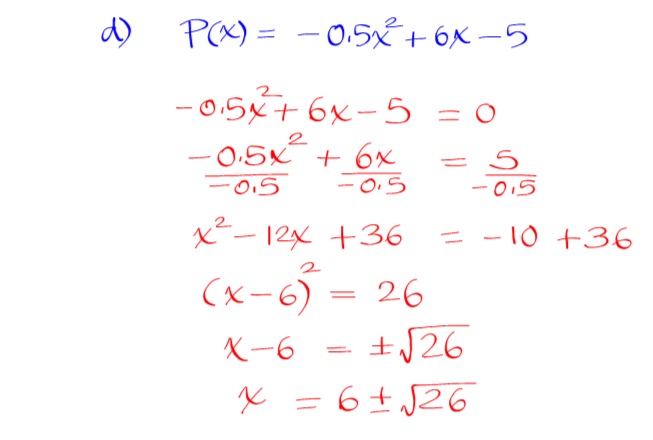 d) P(x) = -0.5x² + 6x - 5
-0.5x² + 6x - 5 = 0
-0.5x²/-0.5 + 6x/-0.5 = 5/-0.5
x² - 12x + 36 = -10 + 36
(x-6)² = 26
x-6 = ±√26
x = 6 ± √26